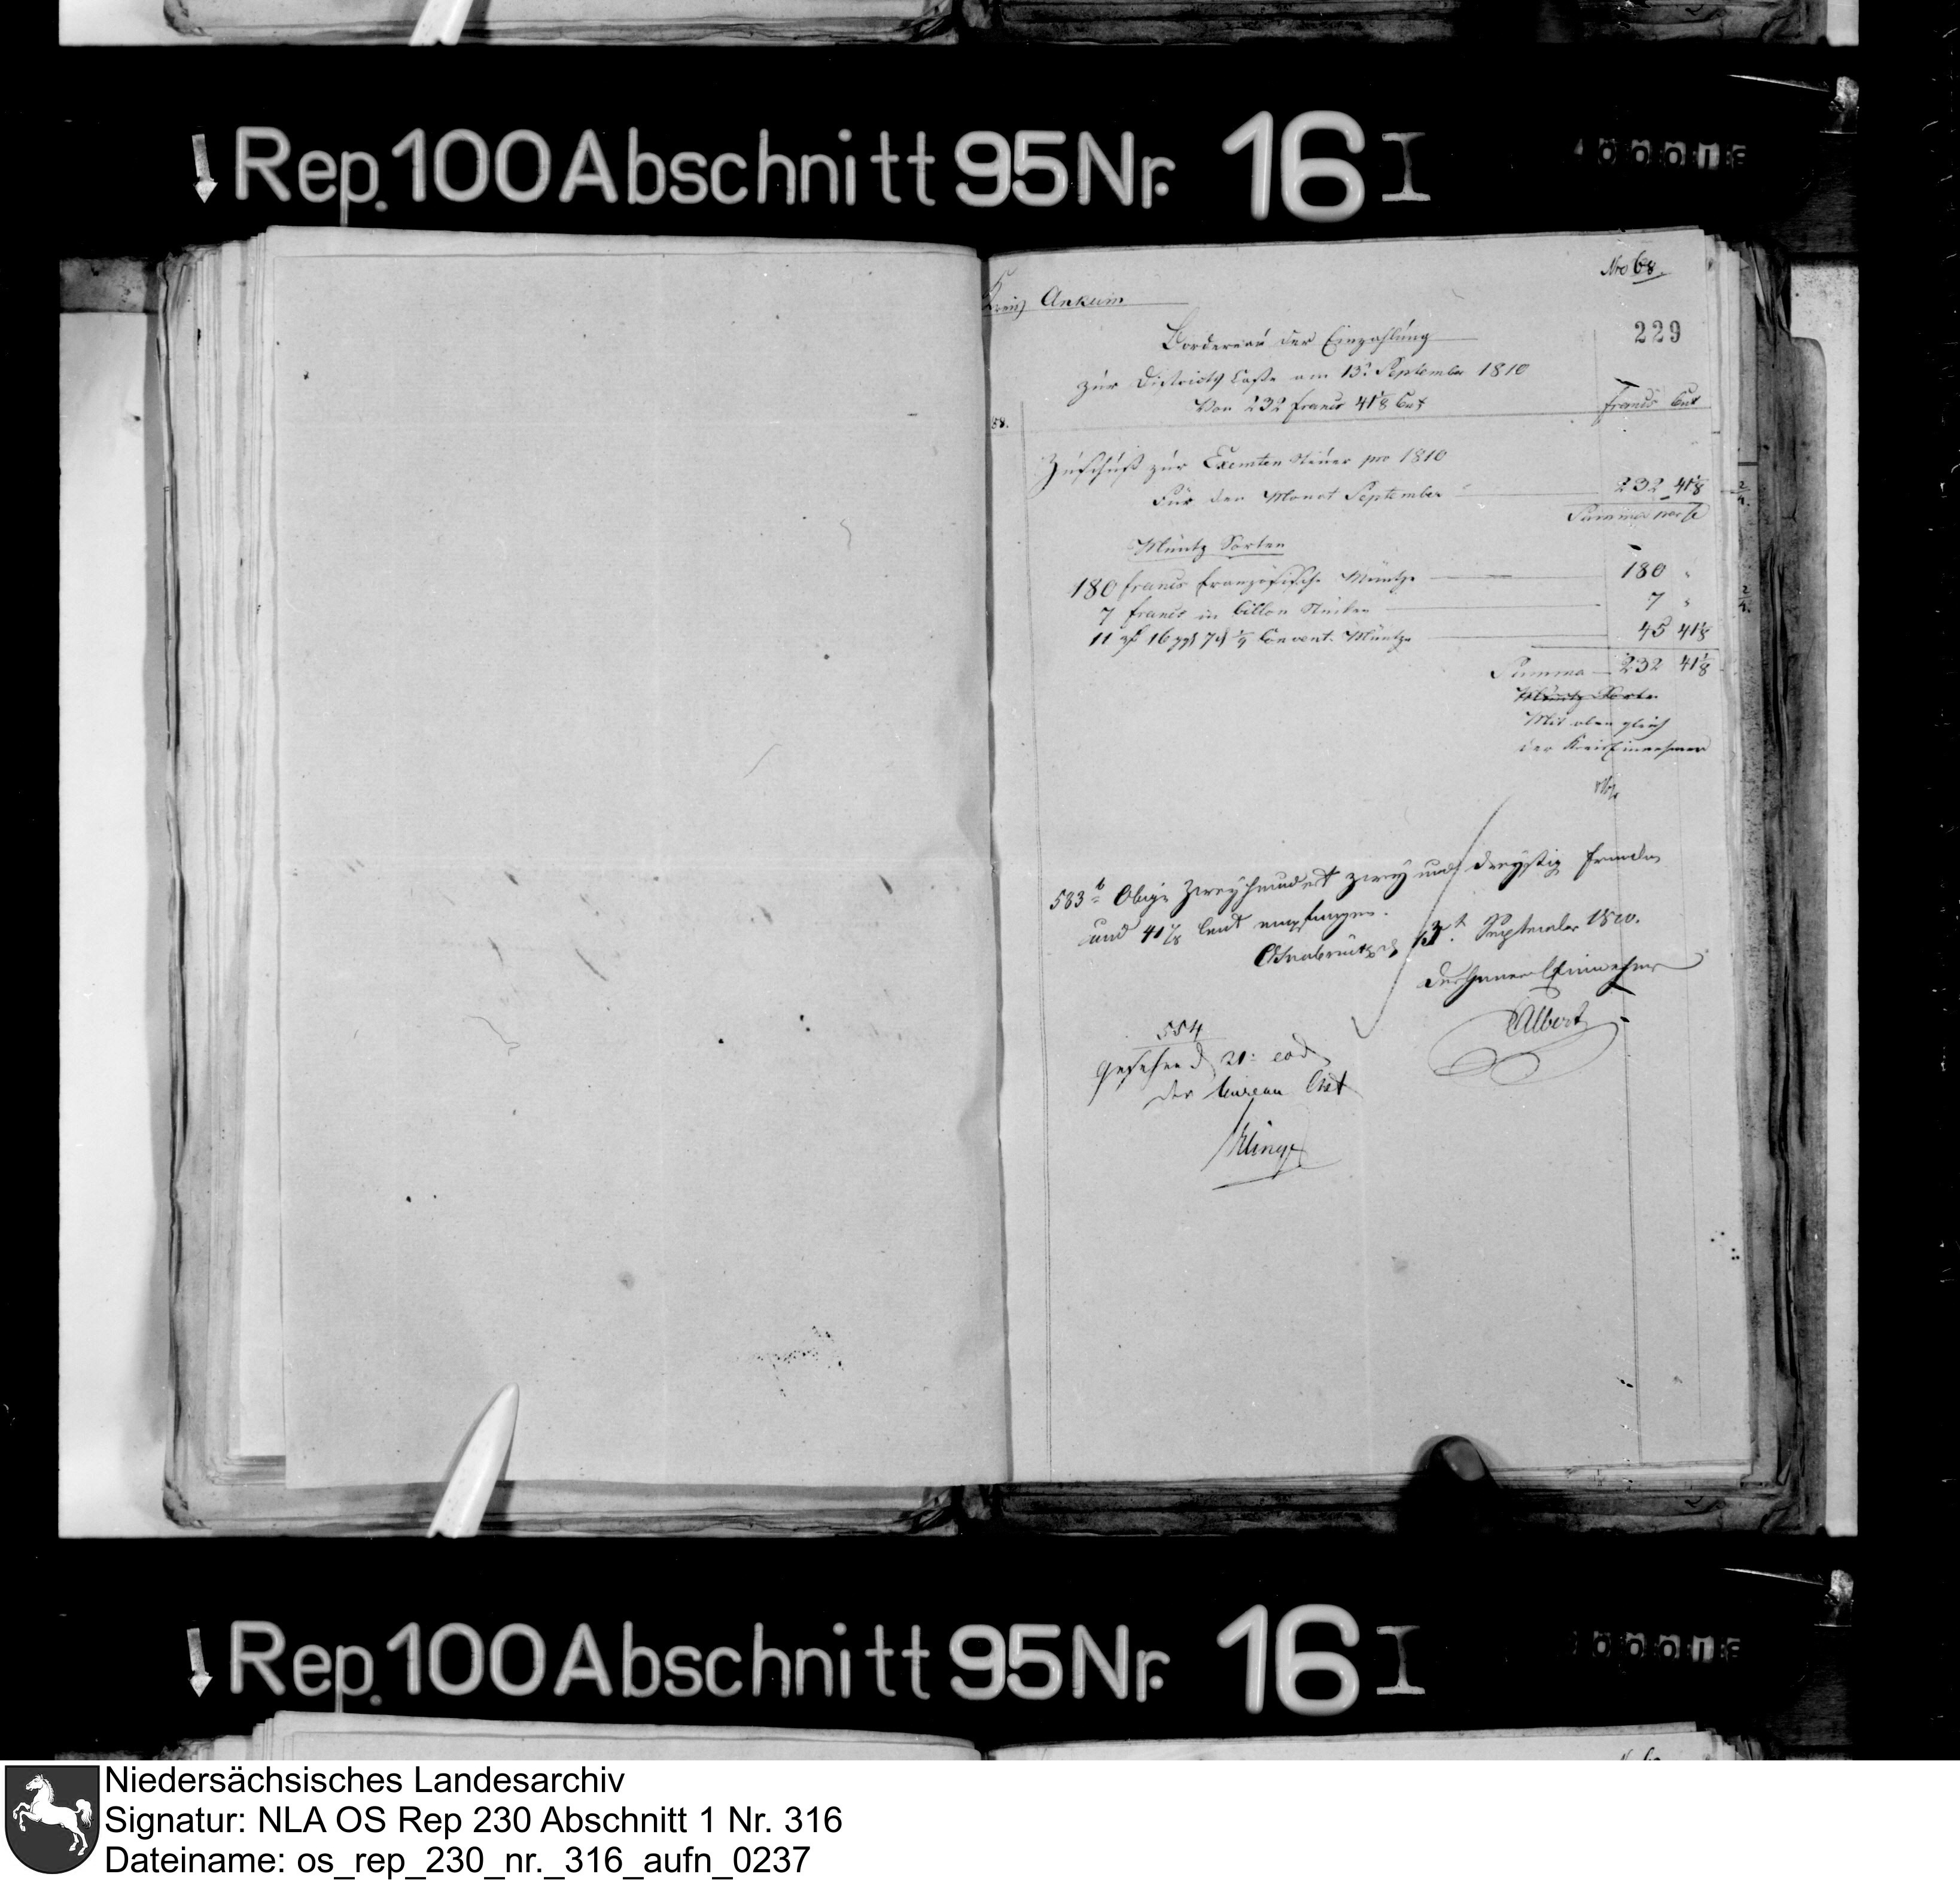 Rep. 100 Abschnitt 95 Nr. 16 I
Nro 68.
Kreis Ankum
229
Bordereau der Einzahlung
zur Districts Casse am 13t September 1810
Von 232 francs 41 1/8 Cent
francs Cent
58.
Zuschuß zur Exemten Steuer pro 1810
Für den Monat September 232 41 1/8
Summa per se
Müntz Sorten
180 francs französische Müntze 180 "
7 francs in billon Stücken 7 "
11 rf 16 ggl 7 d 1/4 Convent. Müntze 45 41 1/8
Summa 232 41 1/8
Müntz Sorten
Mit oben gleich
der Kreis Einnehmer
583 b Obige Zweyhundert zwey und dreyßig Franken
und 41 1/8 Cent empfangen.
Osnabrück d 13t September 1810.
der General Einnehmer
Albert
554
Gesehen d 21t eod
der Bureau Chef
Klinge
Rep. 100 Abschnitt 95 Nr. 16 I
Niedersächsisches Landesarchiv
Signatur: NLA OS Rep 230 Abschnitt 1 Nr. 316
Dateiname: os_rep_230_nr._316_aufn_0237